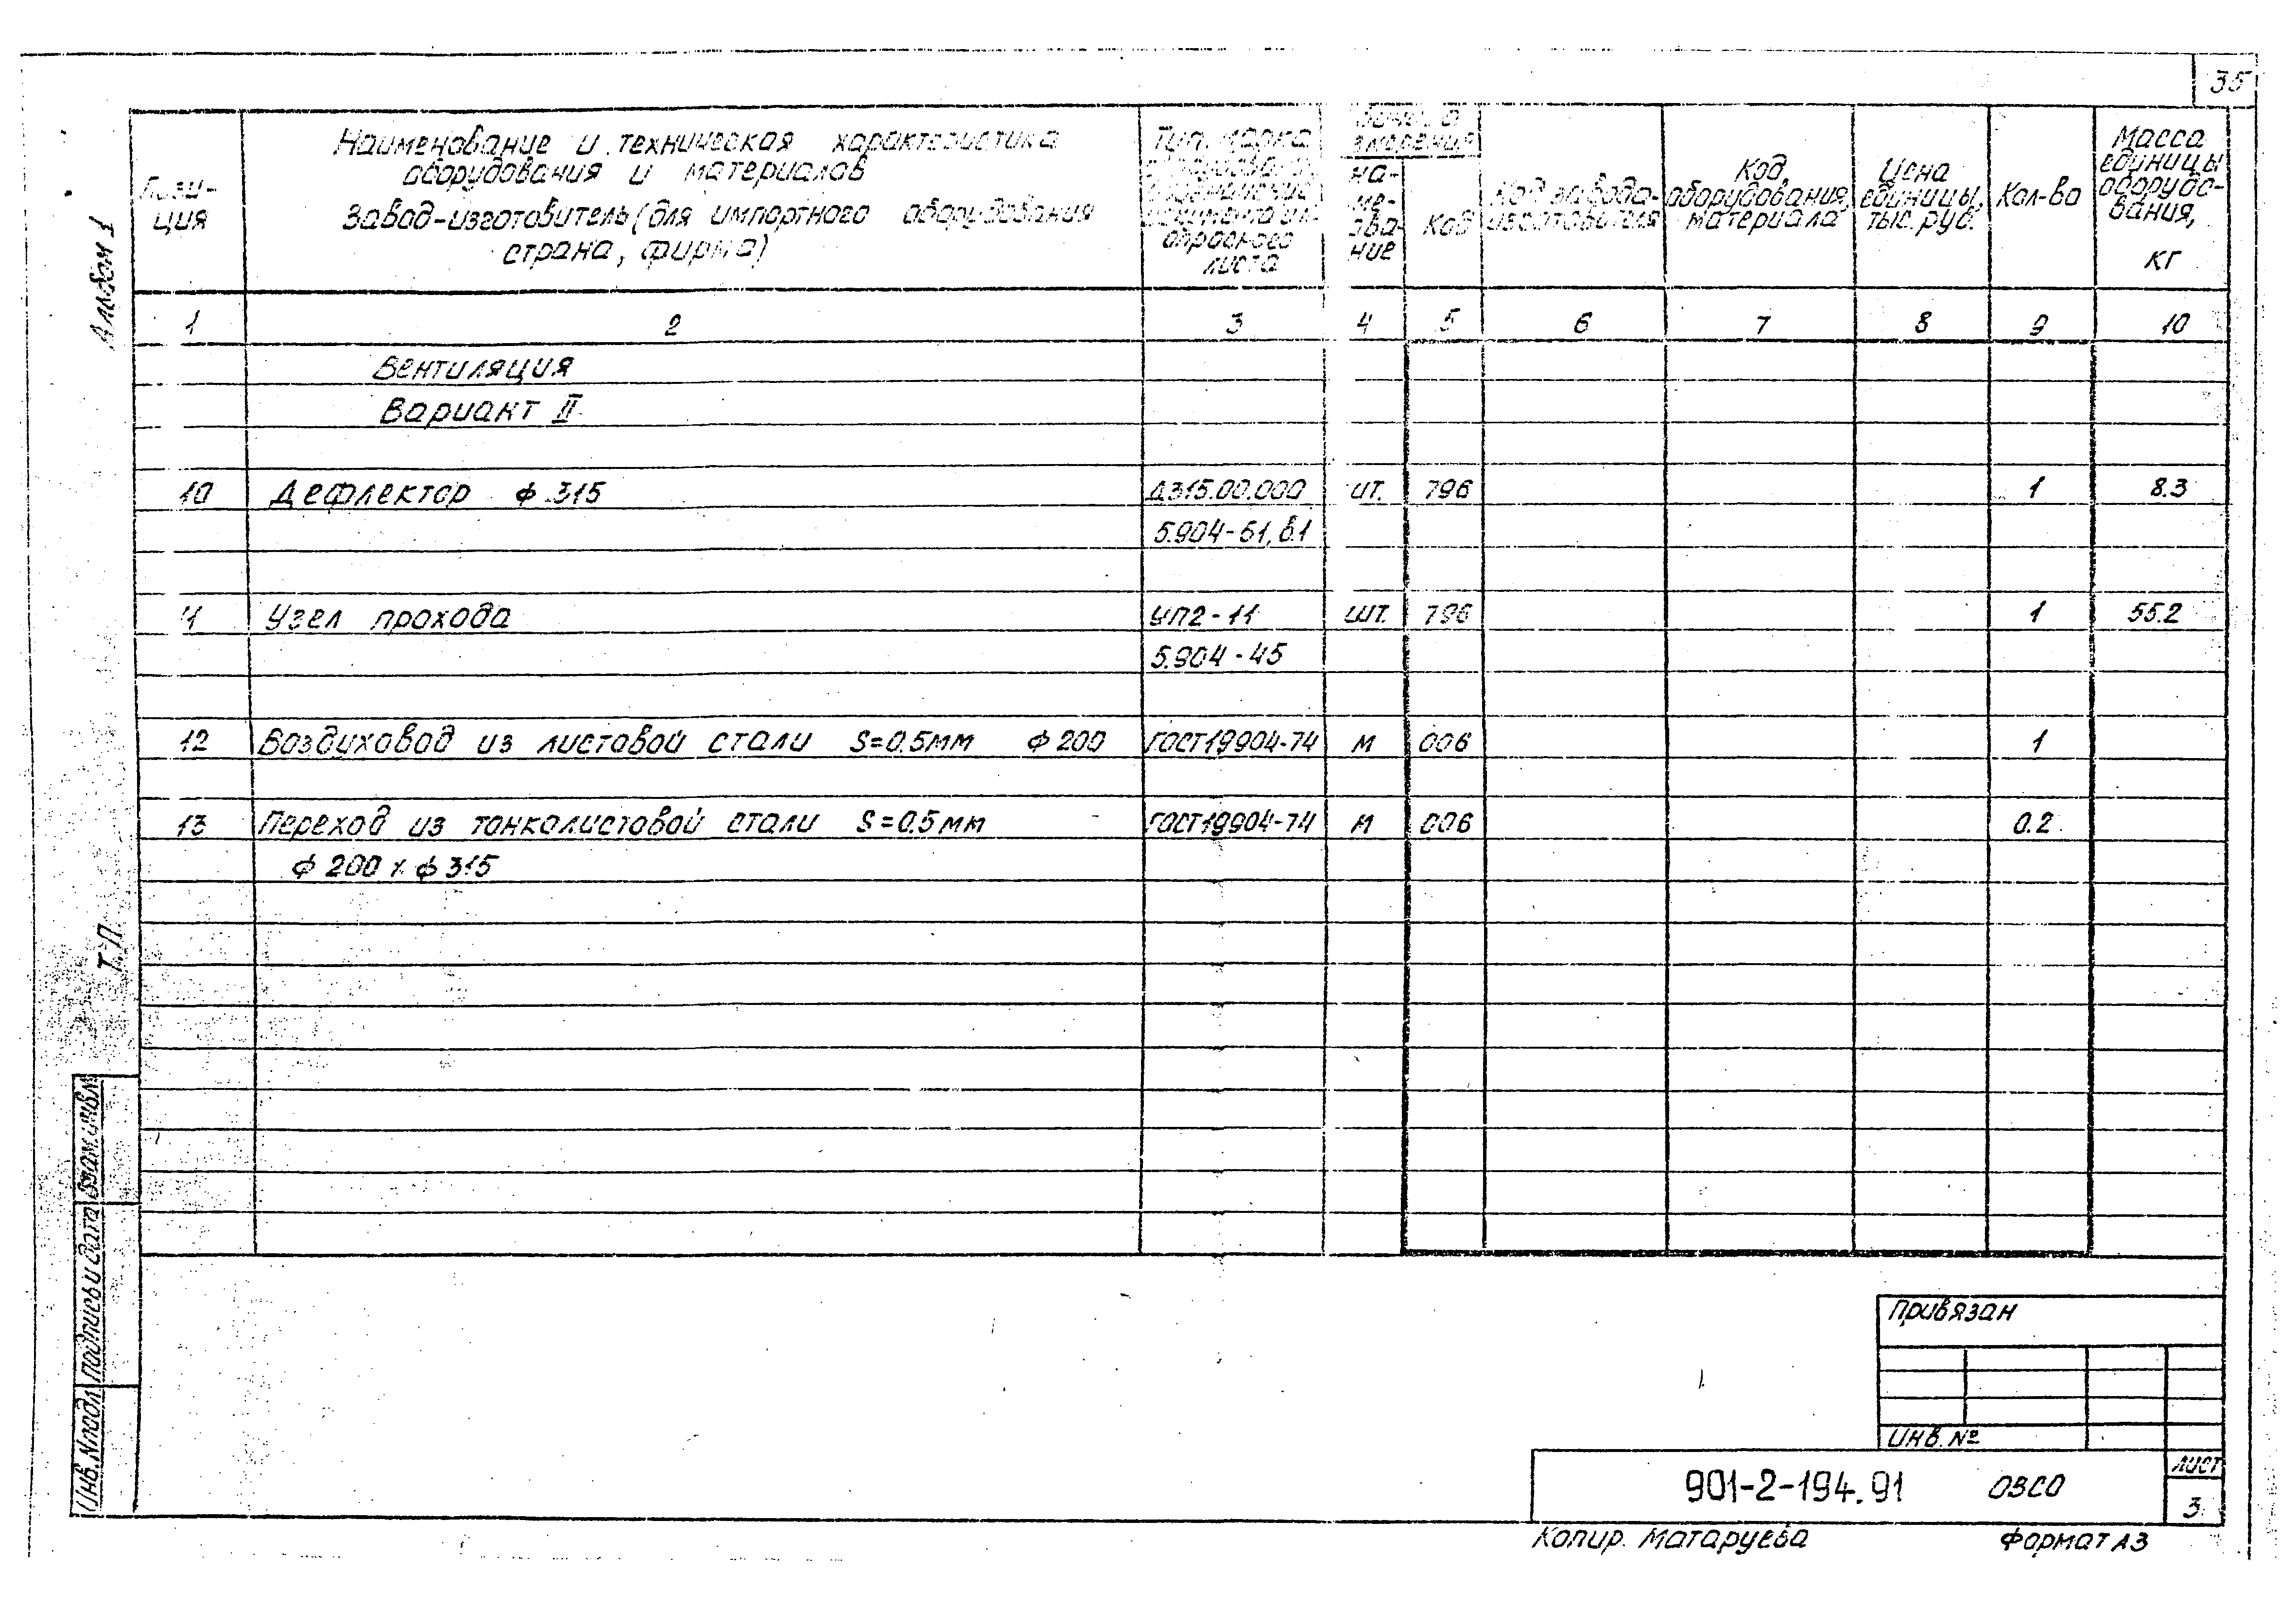 35
Альбом 1
Пози-
ция
Наименование и техническая характеристика
оборудования и материалов
Завод-изготовитель (для импортного оборудования
страна, фирма)
Тип, марка
опросного
листа
на-
ме-
ва-
ние
Код
Код завода-
изготовителя
Код
оборудования,
материала
Цена
единицы,
тыс. руб.
Кол-во
Масса
единицы
оборудо-
вания,
кг
1 2 3 4 5 6 7 8 9 10
Вентиляция
Вариант II
10 Дефлектор ф 315 Д315.00.000 шт. 796 1 8.3
5.904-51, в.1
11 Узел прохода УП2-11 шт. 796 1 55.2
5.904-45
12 Воздуховод из листовой стали S=0.5мм ф 200 ГОСТ19904-74 м 006 1
13 Переход из тонколистовой стали S=0.5мм ГОСТ19904-74 м 006 0.2
ф 200 х ф 315
Т.П.
Взам.инв.№
Подпись и дата
Инв.№подл.
Привязан
Инв. №
901-2-194.91 ОВСО
лист
3
Копир. Матаруева Формат А3